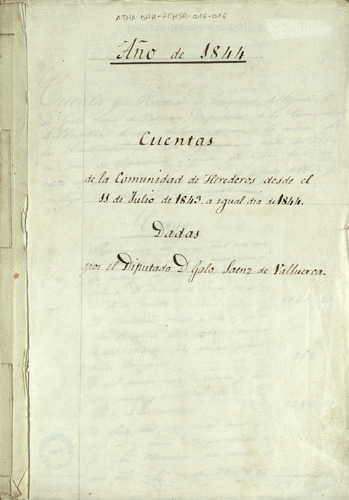 ATHA-DAH-FCMSA-016-016
Año de 1844
Cuentas
de la Comunidad de Herederos desde el
11 de Julio de 1843. a igual dia de 1844.
Dadas
por el Diputado D. Saenz de Valluerca.